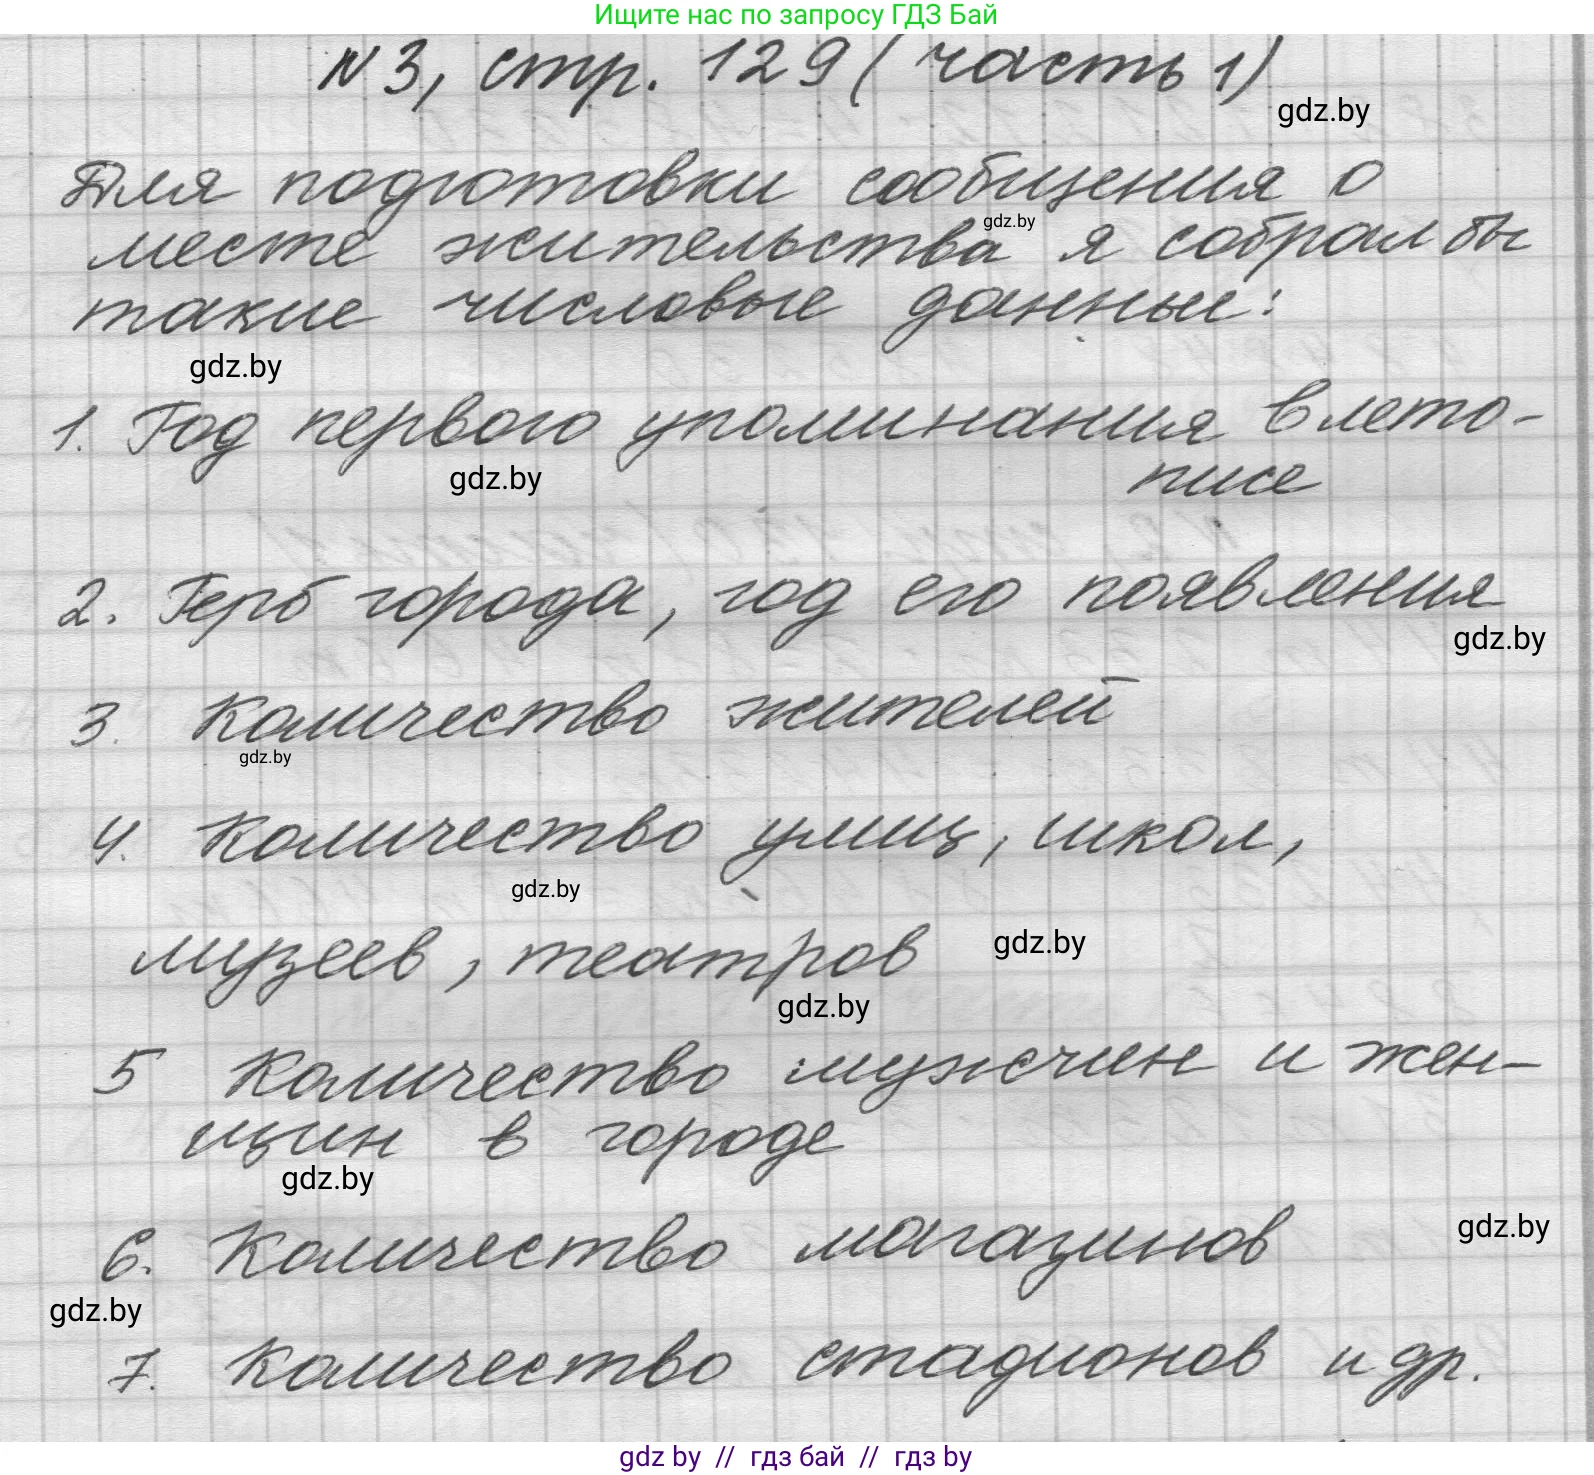 Ищите нас по запросу ГДЗ Бай
N3, стр. 129 (часть 1)
gdz.by
Для подготовки сообщения о
gdz.by
месте жительства я собрал бы
такие числовые данные:
gdz.by
1. Год первого упоминания в лето-
gdz.by
писе
2. Герб города, год его появления
gdz.by
3. Количество жителей
gdz.by
4. Количество улиц, школ,
gdz.by
музеев, театров
gdz.by
gdz.by
5 Количество мужчин и жен-
щин в городе
gdz.by
6. Количество магазинов
gdz.by
gdz.by
7. Количество стадионов и др.
gdz by // гдз бай // гдз by